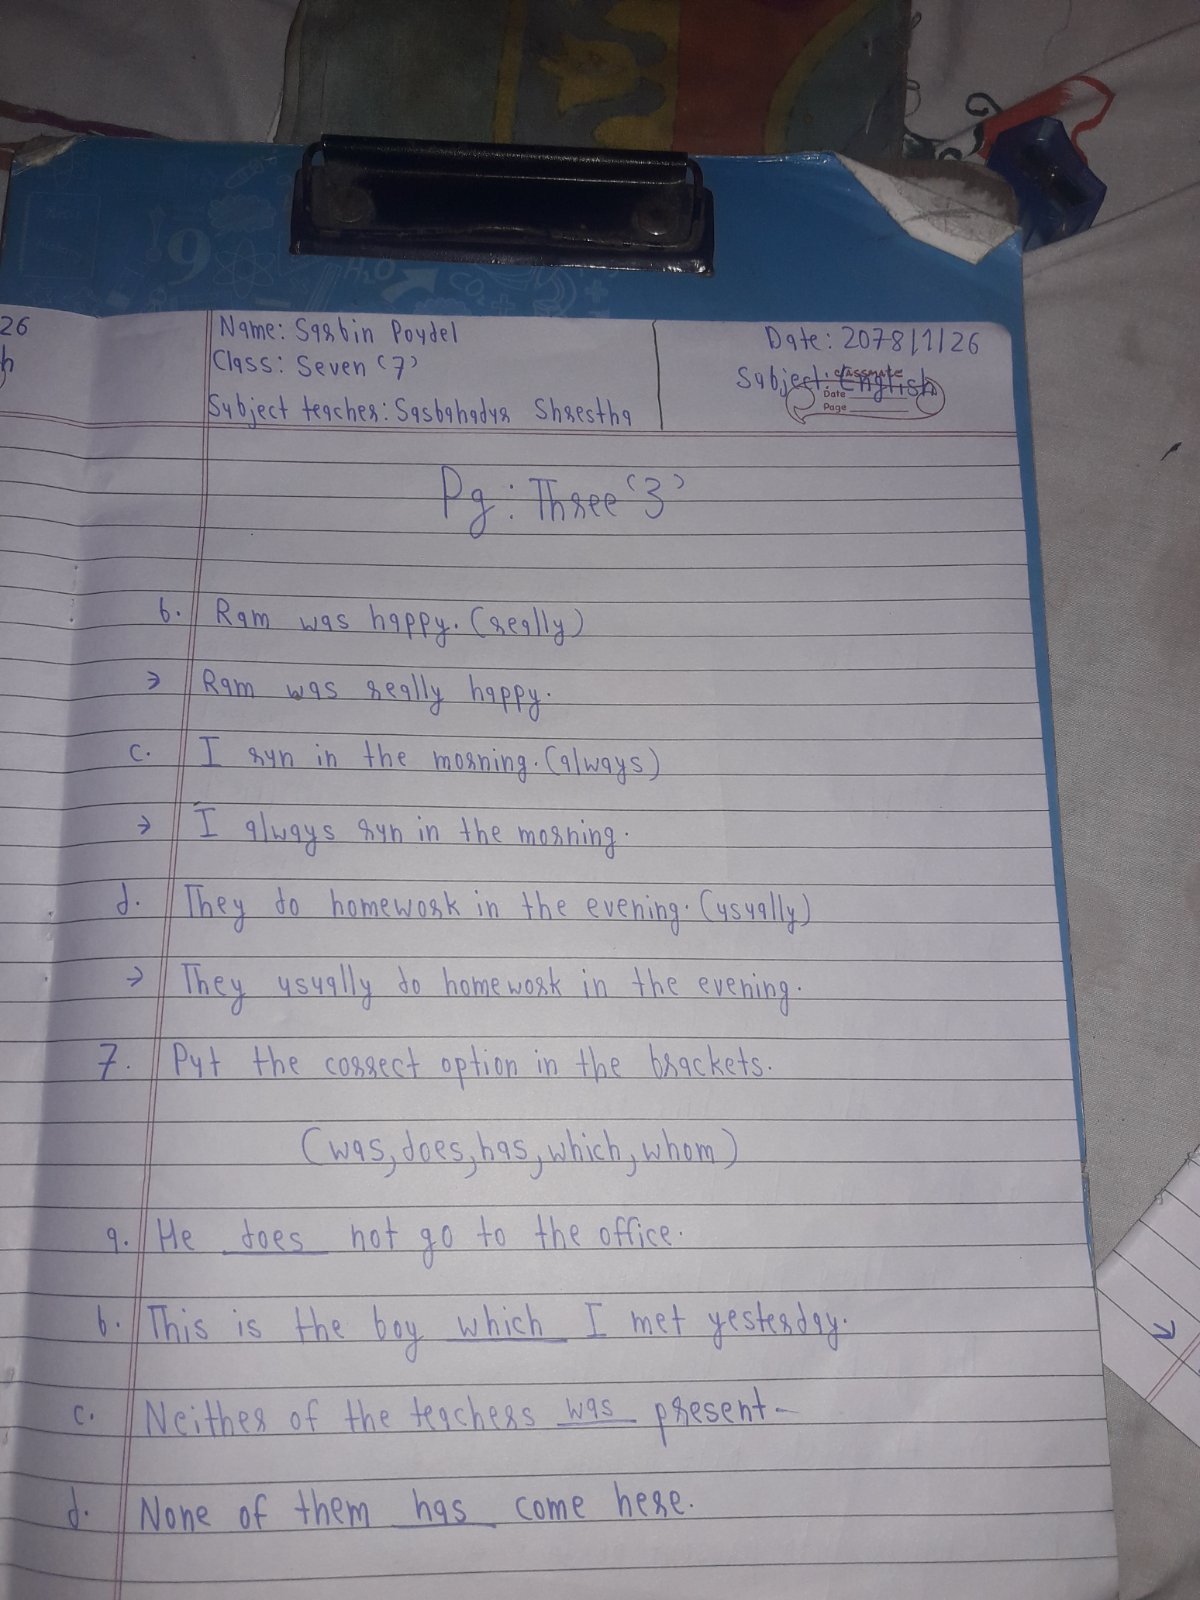 26
h
Name: Sarbin Poudel
Class: Seven '7'
Subject teacher: Sasbahadur Shrestha
Date: 2078/1/26
Subject: English
classmate
Date
Page
Pg: Three '3'
b. Ram was happy. (really)
→ Ram was really happy.
c. I run in the morning. (always)
→ I always run in the morning.
d. They do homework in the evening. (usually)
→ They usually do homework in the evening.
7. Put the correct option in the brackets.
(was, does, has, which, whom)
a. He does not go to the office.
b. This is the boy which I met yesterday.
c. Neither of the teachers was present-
d. None of them has come here.